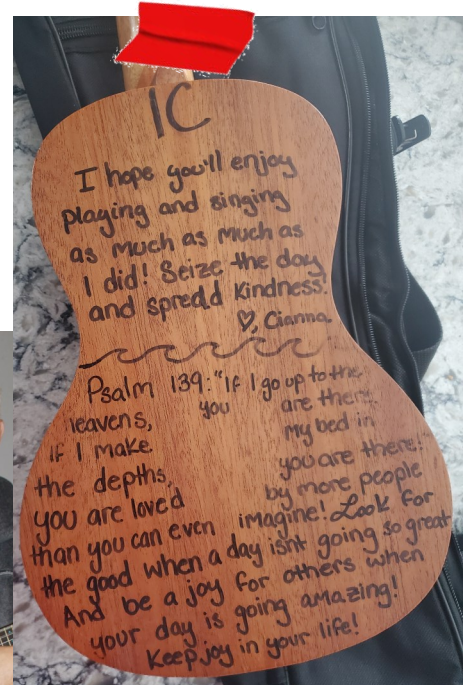 IC
I hope you'll enjoy
playing and singing
as much as much as
I did! Seize the day
and spread kindness!
♡, Cianna.
Psalm 139: "If I go up to the
leavens, you are there
if I make my bed in
the depths, you are there!
you are loved by more people
than you can even imagine! Look for
the good when a day isnt going so great
And be a joy for others when
your day is going amazing!
Keep joy in your life!